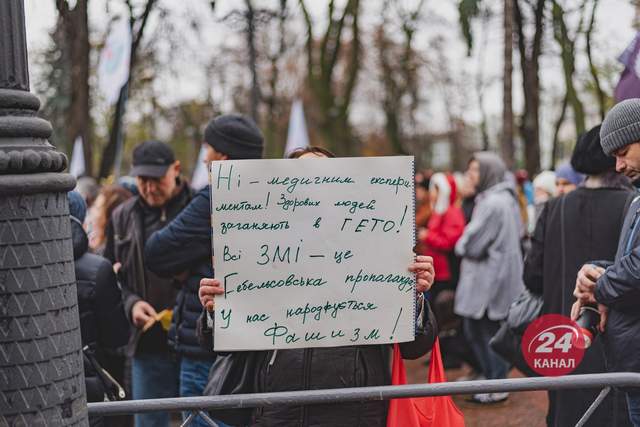 Ні – медичним експери
ментам! Здорових людей
заганяють в ГЕТО!
Всі ЗМІ – це
Гебельсовська пропаганда
У нас народжується
Фашизм!
24
КАНАЛ